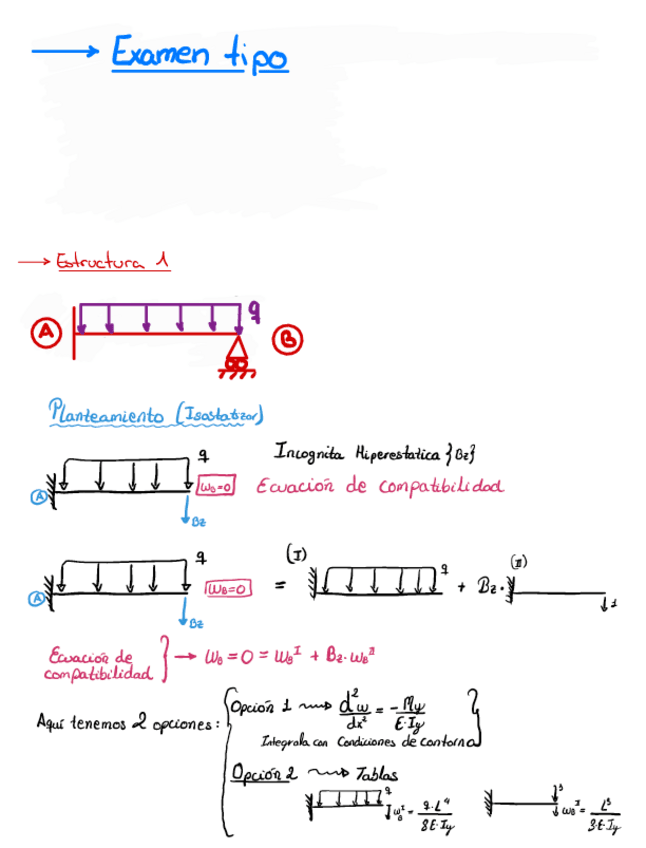 → Examen tipo
→ Estructura 1
q
A B
Planteamiento (Isostatizar)
q Incognita Hiperestatica {Bz}
A ω_B=0 Ecuación de compatibilidad
Bz
q (I) q (II)
A ω_B=0 = + Bz· 1
Bz
Ecuación de compatibilidad } → ω_B = 0 = ω_B^I + Bz·ω_B^II
Aquí tenemos 2 opciones:
Opción 1 → d²ω/dx² = -My/E·Iy
Integrala con Condiciones de contorno
Opción 2 → Tablas
q ω_B^I = q·L⁴/8E·Iy L³/3E·Iy